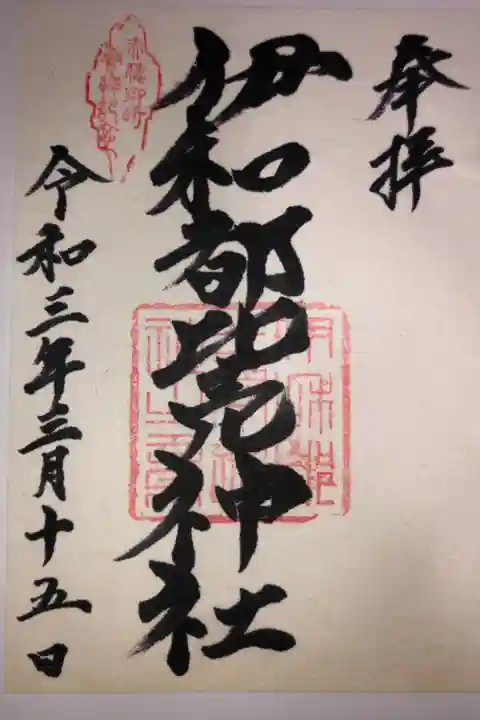 奉拝
伊和都比売神社
令和三年三月十五日